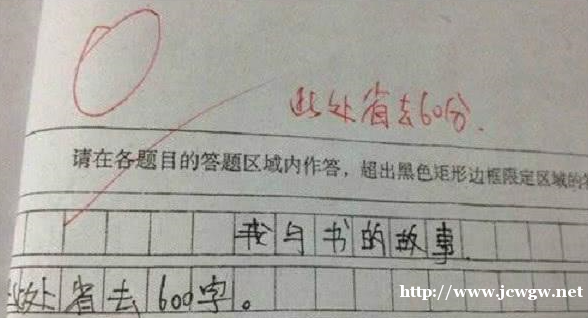 0
此处省去60分.
请在各题目的答题区域内作答，超出黑色矩形边框限定区域的
我与书的故事
此处省去600字。
http://www.jcwgw.net